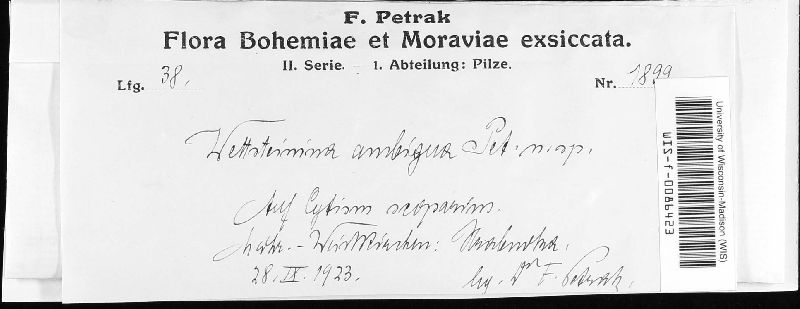 F. Petrak
Flora Bohemiae et Moraviae exsiccata.
II. Serie. - 1. Abteilung: Pilze.
Lfg. 38. Nr. 1899
Wettsteinina ambigua Pet. n. sp.
Auf Cytisus scoparius.
Mähr.-Weisskirchen:
28. IX. 1923. leg. Dr F. Petrak.
University of Wisconsin-Madison (WIS)
WIS-f-0086423